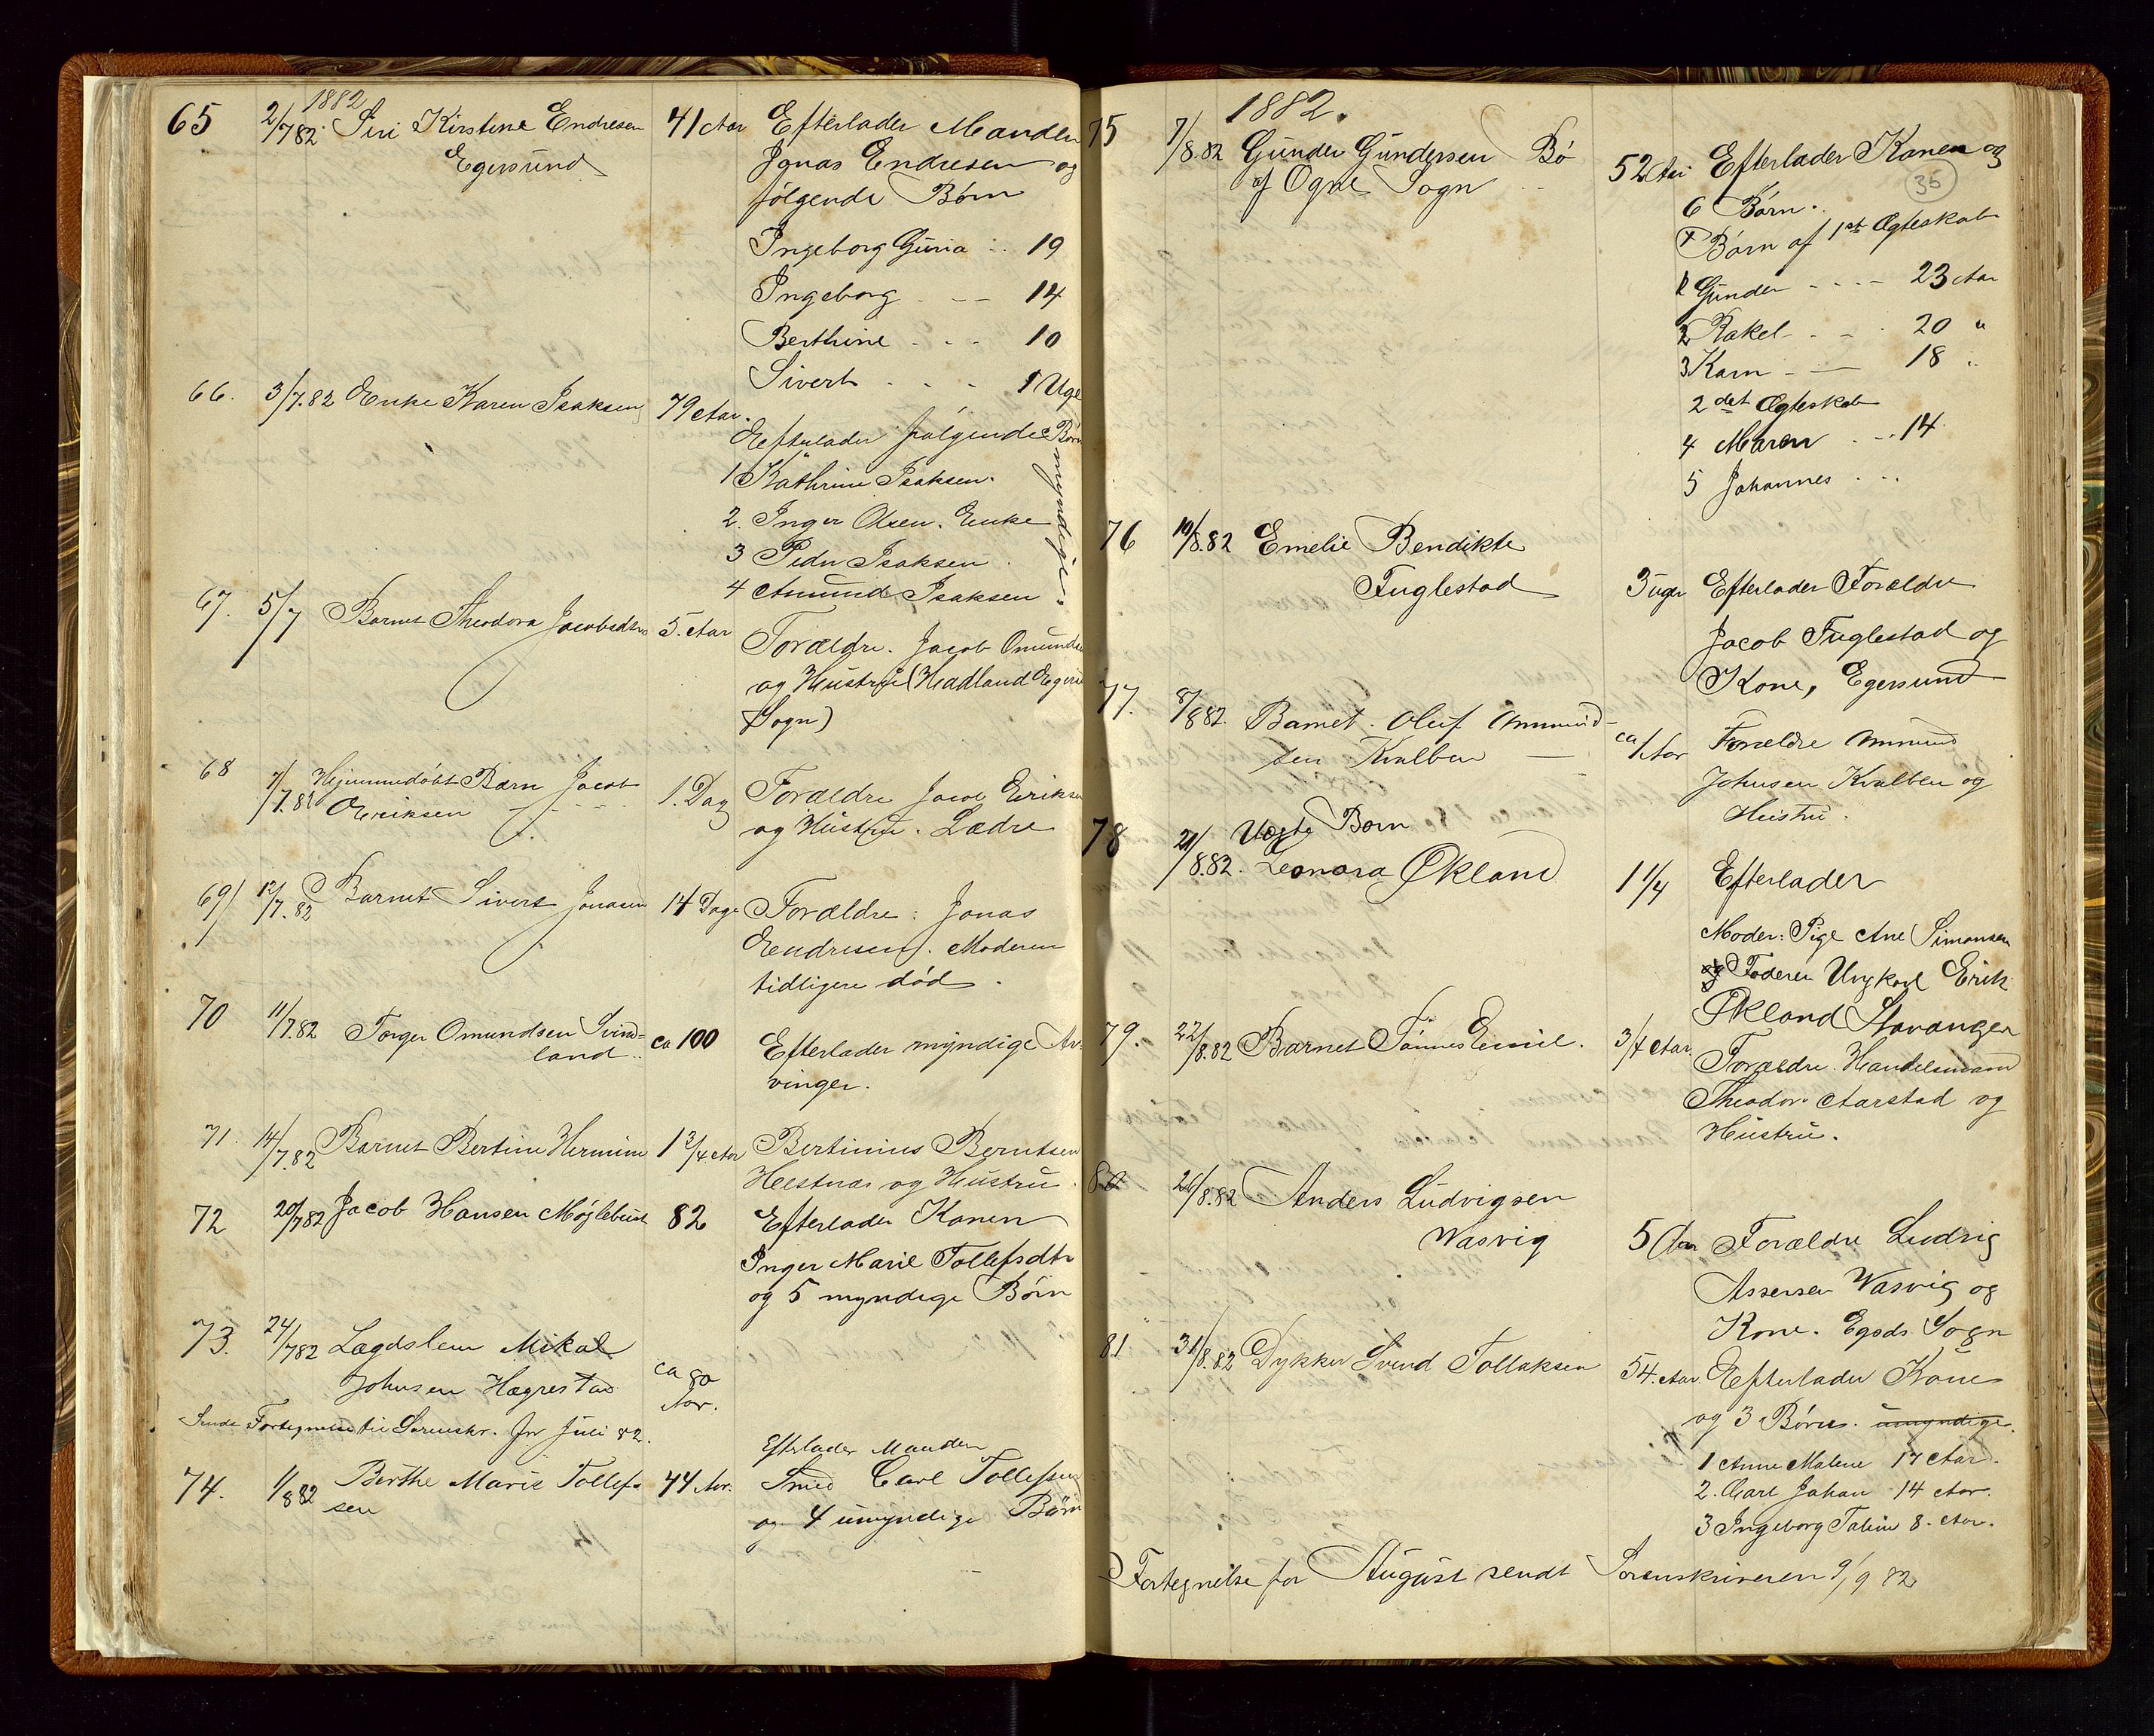 1882
65 2/7 82. Siri Kirstine Endresen 41 Aar Efterlader Manden
Egersund Jonas Endresen og
følgende Børn
Ingeborg Guria . . 19
Ingeborg . — 14
Berthine . . . 10
Sivert . . . 1 Uge
66. 3/7.82 Enke Karen Isaksen 79 Aar.
Efterlader følgende Børn
myndige.
1 Kathrine Isaksen.
2. Inger Olsen. Enke
3 Peder Isaksen
4 Amund Isaksen
67. 5/7 Barnet Theodora Jacobsdtr 5. Aar
Forældre. Jacob Omunds
og Hustru (Hadland
Sogn)
68 7/7.82 Hjemmedøbt Barn Jacob 1. Dag Forældre Jacob Eriksen
Eriksen og Hustru. Lædre
69) 12/7.82 Barnet Sivert Jonasen 14 Dage Forældre: Jonas
Endresen. Moderen
tidligere død.
70 11/7.82 Torger Omundsen Svind- ca 100 Efterlader myndige Ar-
land. vinger.
71. 14/7.82 Barnet Bertine Hermine 1 3/4 Aar Bertinius Berntsen
Hestnæs og Hustru.
72 20/7 82 Jacob Hansen Møglebust 82 Efterlader Konen
Inger Marie Tollefsdtr
og 5 myndige Børn
73. 24/7 82 Lægdslem Mikal
Johnsen Hægrestad ca 80
Aar.
Sendt Fortegnelse til Sorenskr. for Juli 82.
Efterlader Manden
74. 1/8 82 Berthe Marie Tollef- 44 Aar. Smed Carl Tollefsen
sen og 4 umyndige Børn
1882.
75 7/8.82 Gunder Gundersen Bø 52 Aar Efterlader Konen og
af Ogne Sogn 35
6 Børn.
Børn af 1st Ægteskab
1 Gunder - - - - 23 Aar
2 Rakel - - . 20 "
3 Karn - — 18 "
2det Ægteskab
4 Maren . .. 14
5 Johannes . ..
76 10/8.82 Emelie Bendikte
Fuglestad 3 uger Efterlader Forældre
Jacob Fuglestad og
Kone, Egersund
77. 8/8 82. Barnet. Oluf Ammund- ca 1 Aar Forældre Ammund
sen Kvalben — Johnsen Kvalben og
Hustru.
78 21/8.82. Uægte Barn
Leonora Økland 1 1/4 Efterlader
Moder: Pige Ane Simonsen
og Faderen Ungkarl Erik
Økland Stavanger
79. 22/8.82 Barnet Tønnes Emil. 3/4 Aar.
Forældre. Handelsmand
Theodor Aarstad og
Hustru.
80 26/8.82 Anders Ludvigsen
Wasvig 5 Aar Forældre Ludvig
Assersen Wasvig og
Kone. Egsds Sogn
81. 31/8.82 Dykker Svend Tollaksen 54. Aar Efterlader Kone
og 3 Børn. umyndige.
1 Anne Malene 17 Aar.
2. Carl Johan 14 Aar.
3 Ingeborg Taline 8. Aar.
Fortegnelse for August sendt Sorenskriveren 9/9 82